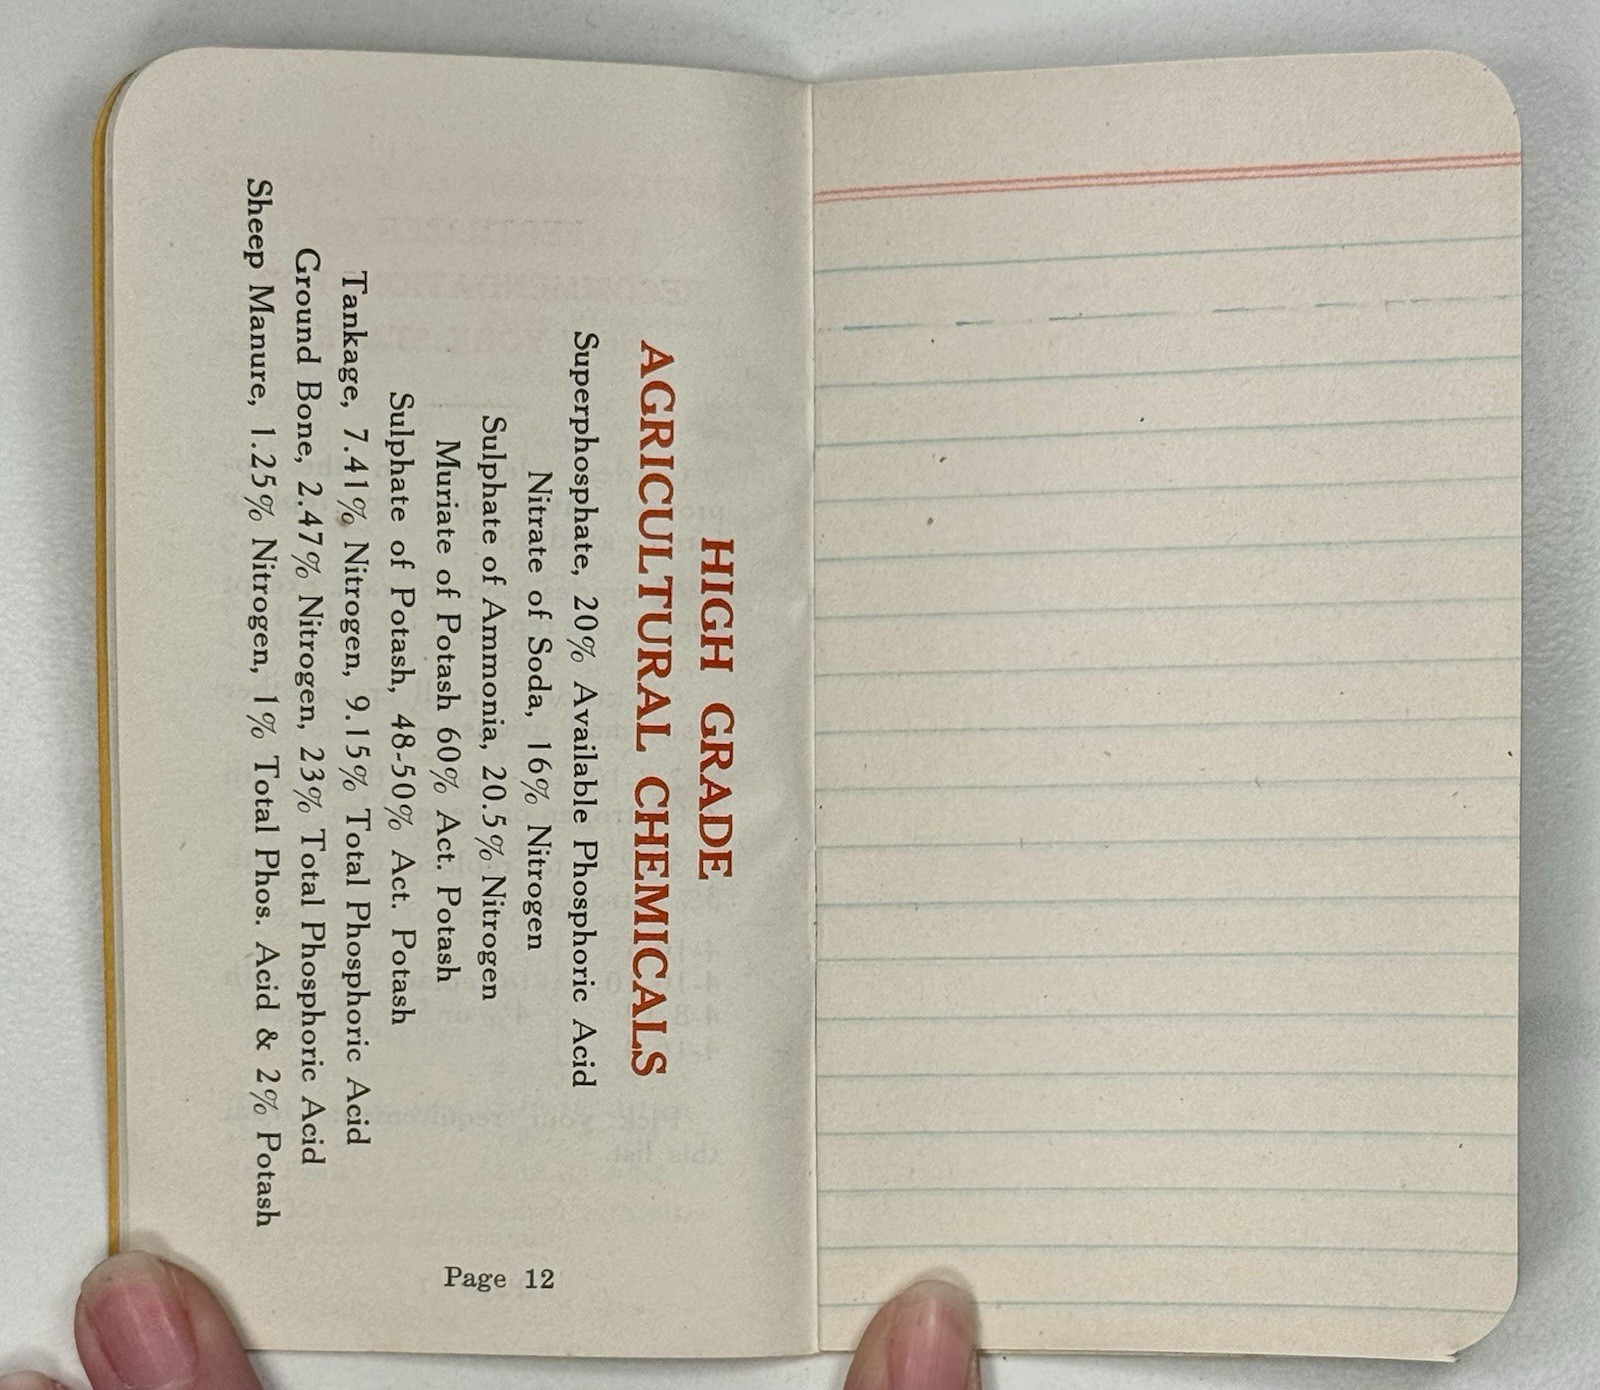 HIGH GRADE
AGRICULTURAL CHEMICALS
Superphosphate, 20% Available Phosphoric Acid
Nitrate of Soda, 16% Nitrogen
Sulphate of Ammonia, 20.5% Nitrogen
Muriate of Potash 60% Act. Potash
Sulphate of Potash, 48-50% Act. Potash
Tankage, 7.41% Nitrogen, 9.15% Total Phosphoric Acid
Ground Bone, 2.47% Nitrogen, 23% Total Phosphoric Acid
Sheep Manure, 1.25% Nitrogen, 1% Total Phos. Acid & 2% Potash
Page 12